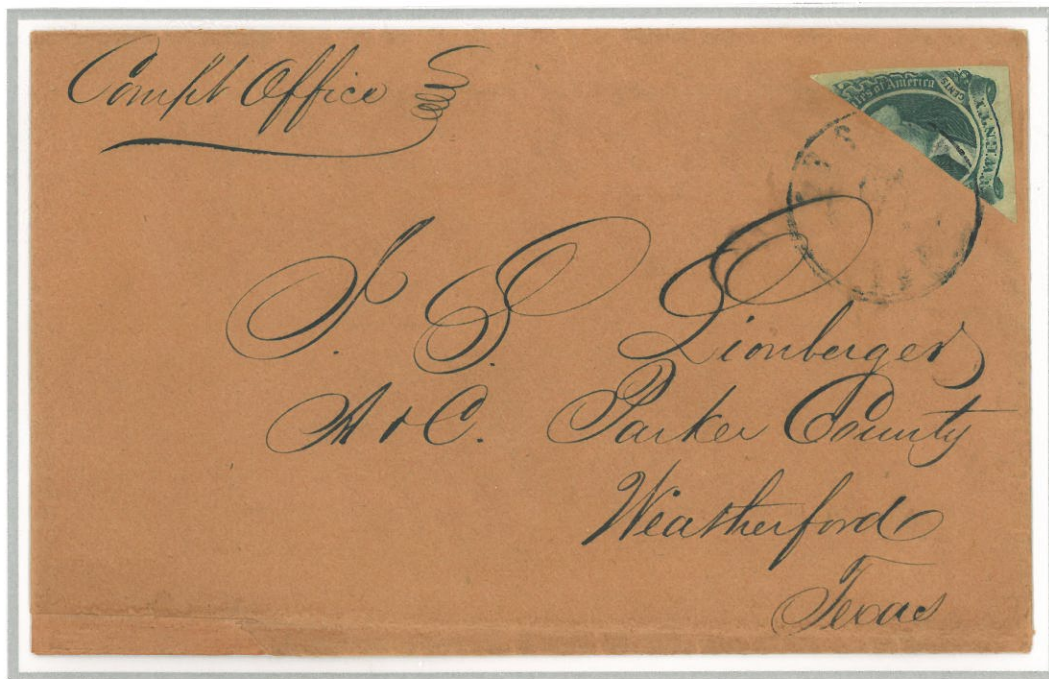 Compt Office
es of America
CENTS
J. S. Lionberger
A & C. Parker County
Weatherford
Texas